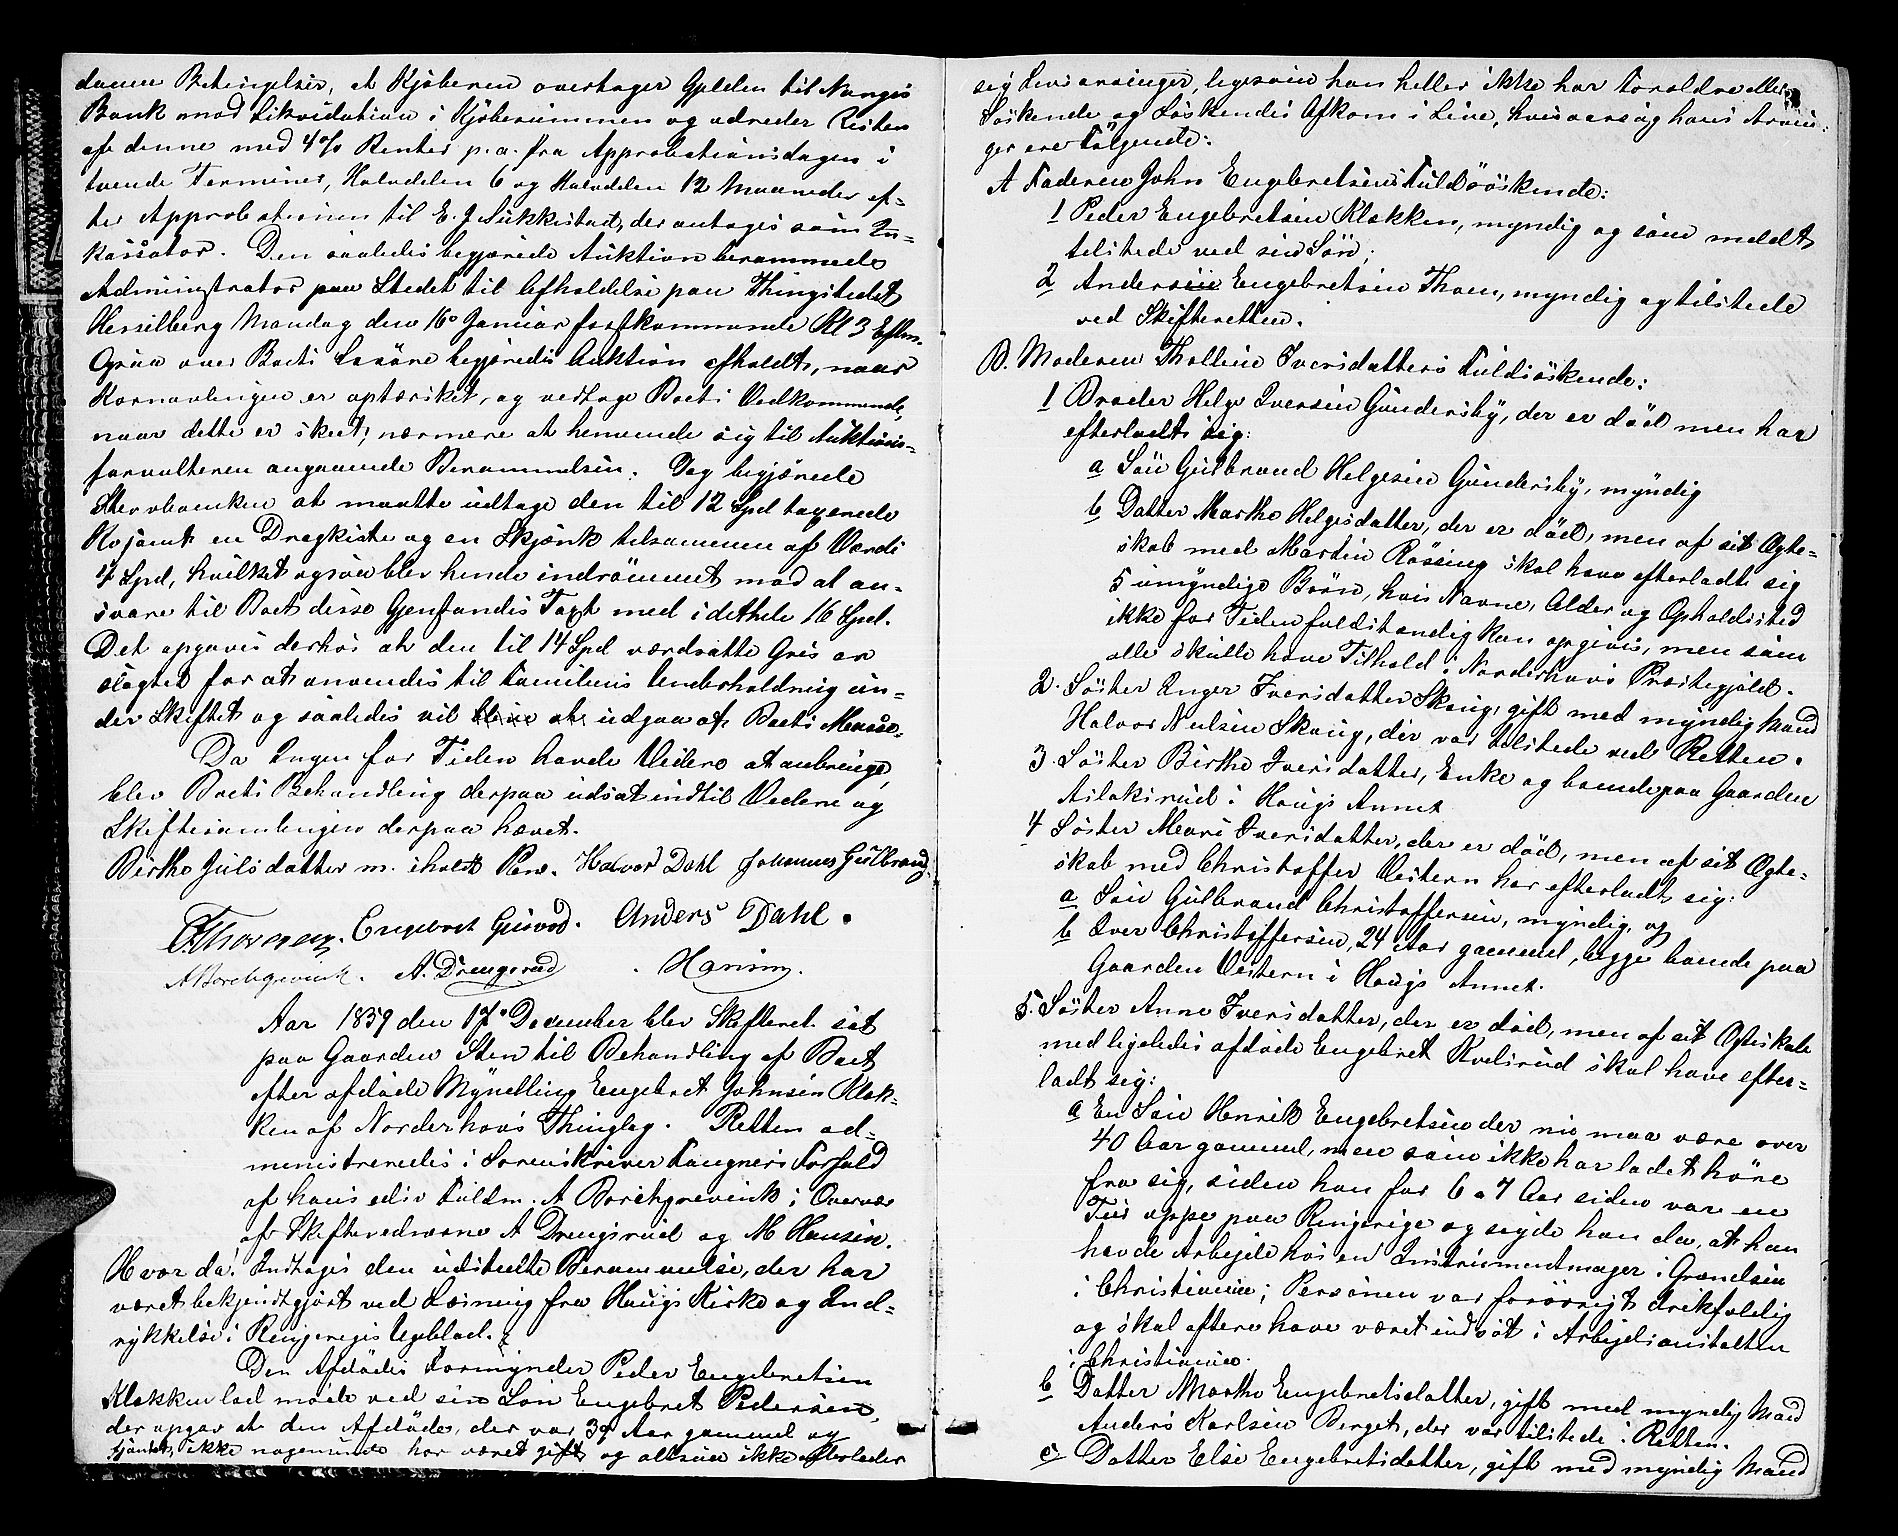 danne Betingelser, at Kjøberen overtager Gjælden til Norges
Bank mod Likvidation i Kjøbesummen og udreder Resten
af denne med 4% Renter p.a. fra Approbationsdagen i
tvende Terminer, Halvdelen 6 og Halvdelen 12 Maaneder ef-
ter Approbationen til E. J. Sukkestad, der antages som In-
kassator. Den saaledes begjærede Auktion berammede
Administrator paa Stedet til Afholdelse paa Thingstedet
Hesselberg Mandag den 16de Januar førstkommende Kl 3 Eftm.
Ogsaa over Boets Løsøre begjæredes Auktion afholdt, naar
Kornavlingen er optærsket, og vedtoge Boets Vedkommende,
naar dette er skeet, nærmere at henvende sig til Auktions-
forvalteren angaaende Berammelsen. Jeg begjærede
Stervboenken at maatte udtage den til 12 Spd taxerede
Ko samt en Dragkiste og en Skjænk tilsammen af Værdi
4 Spd, hvilket ogsaa blev hende indrømmet mod at an-
svare til Boet disse Gjenstandes Taxt med i dethele 16 Spd.
Det opgaves derhos at den til 14 Spd værdsatte Gris er
slagtet for at anvendes til Familiens Underholdning un-
der Skiftet og saaledes vil udgaa af Boets Masse.
Da Ingen for Tiden havde Videre at anbringe,
blev Boets Behandling derpaa udsat indtil Videre og
Skiftesamlingen derpaa hævet.
Birthe Gulsdatter m. iholdt Pen. Halvor Dahl Johannes Gulbrand.
Thorsen. Engebret Gusvod. Anders Dahl.
A Borchgrevink. A. Drengsrud. Hansen.
Aar 1859 den 17de December blev Skifteret sat
paa Gaarden Sten til Behandling af Boet
efter afdøde Myndling Engebret Johnsen Klæk-
ken af Norderhovs Thinglag. Retten ad-
ministreredes i Sorenskriver Fougners Forfald
af hans edsv Fuldm. A Borchgrevink i Overvær
af Skiftevidnerne A Drengsrud og M Hansen.
Hvor da: Indtoges den udstedte Berammelse, der har
været bekjendtgjort ved Læsning fra Haugs Kirke og Ind-
rykkelse i Ringeriges Ugeblad.
Den Afdødes Formynder Peder Engebretsen
Klækken lod møde ved sin Søn Engebret Pedersen,
der opgav at den Afdøde, der var 39 Aar gammel og
ikke nogensinde har været gift og altsaa ikke efterlader
sig Livsarvinger, ligesom han heller ikke har Forældre eller
Søskende og Søskendes Afkom i Live, hvisaarsag hans Arvin-
ger ere Følgende:
A Faderen John Engebretsens Fuldsøskende:
1 Peder Engebretsen Klækken, myndig og som meldt
tilstede ved sin Søn;
2 Anders Engebretsen Thoen, myndig og tilstede
ved Skifteretten.
B. Moderen Tholline Iversdatters Fuldsøskende:
1 Broder Helge Iversen Gundersby, der er død men har
efterladt sig:
a Søn Gulbrand Helgesen Gundersby, myndig
b Datter Marthe Helgesdatter, der er død, men af sit Ægte-
skab med Martin Røssing skal have efterladt sig
5 umyndige Børn, hvis Navne, Alder og Opholdssted
ikke for Tiden fuldstændig kan opgives, men som
alle skulle have Tilhold i Norderhovs Præstegjæld.
2. Søster Inger Iversdatter Skaug, gift med myndig Mand
Halvor Nielsen Skaug, der var tilstede ved Retten.
3. Søster Birthe Iversdatter, Enke og boende paa Gaarden
Aslaksrud i Haugs Annex
4 Søster Mari Iversdatter, der er død, men af sit Ægte-
skab med Christoffer Vestern har efterladt sig:
a Søn Gulbrand Christoffersen, myndig, og
b Iver Christoffersen, 24 Aar gammel, begge boende paa
Gaarden Vestern i Haugs Annex.
5. Søster Anne Iversdatter, der er død, men af sit Ægteskab
med ligeledes afdøde Engebret Kvelsrud skal have efter-
ladt sig:
a En Søn Henrik Engebretsen der nu maa være over
40 Aar gammel, men som ikke har ladet høre
fra sig, siden han for 6 a 7 Aar siden var en
Tur oppe paa Ringerige og sagde han da, at han
havde Arbejde hos en Instrumentmager i Grændsen
i Christiania; Personen var forøvrigt drikfældig
og skal oftere have været indsat i Arbejdsanstalten
i Christiania.
b Datter Marthe Engebretsdatter, gift med myndig Mand
Anders Karlsen Berget, der var tilstede i Retten.
c Datter Else Engebretsdatter, gift med myndig Mand